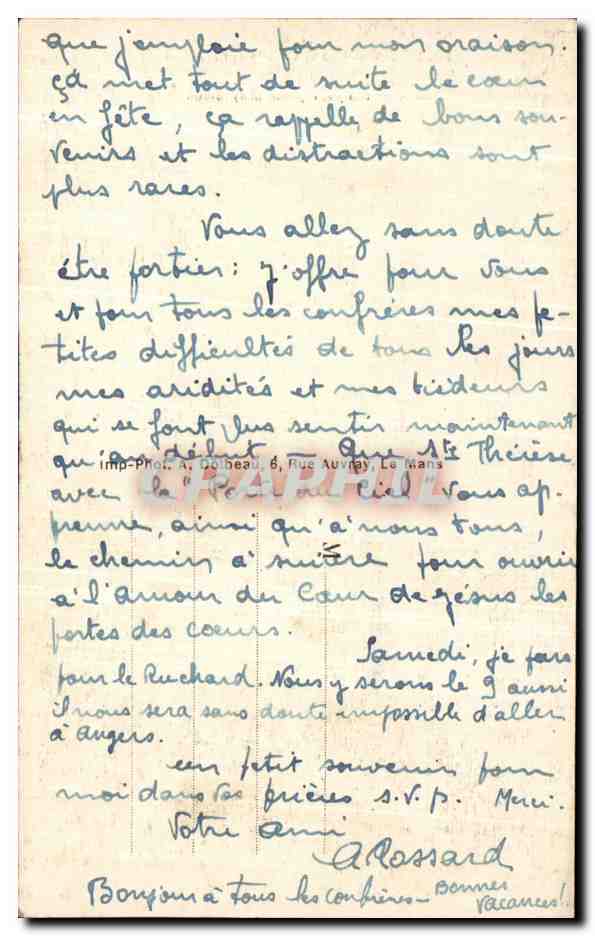 que j'emploie pour mon oraison.
ça met tout de suite le cœur
en fête, ça rappelle de bons sou-
venirs et les distractions sont
plus rares.
Vous allez sans doute
être fortiers : J'offre pour vous
et pour tous les confrères mes pe-
tites difficultés de tous les jours
mes aridités et mes tiédeurs
qui se font plus sentir maintenant
qu'au début — Que Ste Thérèse
Imp-Phot. A. Dolbeau, 6, Rue Auvray, Le Mans
CARAPHIL
avec la " du Ciel" vous ap-
prenne, ainsi qu'à nous tous,
le chemin à suivre pour ouvrir
à l'amour du Cœur de Jésus les
portes des cœurs.
Samedi, je pars
pour le Ruchard. Nous y serons le 9 aussi
il nous sera sans doute impossible d'aller
à Angers.
un petit souvenir pour
moi dans vos prières s.v.p. Merci.
Votre ami
A Rossard
Bonjour à tous les confrères — Bonnes
Vacances!